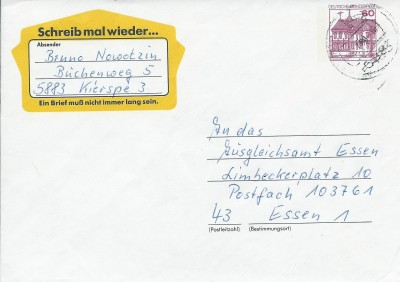 Schreib mal wieder...
Absender
Bruno Nowotzin
Büchenweg 5
5883 Kierspe 3
Ein Brief muß nicht immer lang sein.
60
An das
Ausgleichsamt Essen
Limbeckerplatz 10
Postfach 103761
43 Essen 1
(Postleitzahl) (Bestimmungsort)